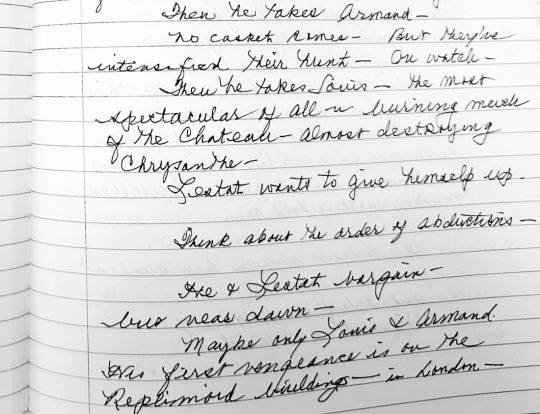 Then he takes Armand —
No casket comes — But they've
intensified their hunt — On watch —
Then he takes Louis — the most
spectacular of all — burning much
of the Chateau — almost destroying
Chrysanthe —
Lestat wants to give himself up.
Think about the order of abductions —
He & Lestat bargain —
but near dawn —
Maybe only Louis & Armand.
His first vengeance is on the
Replimoid buildings — in London —